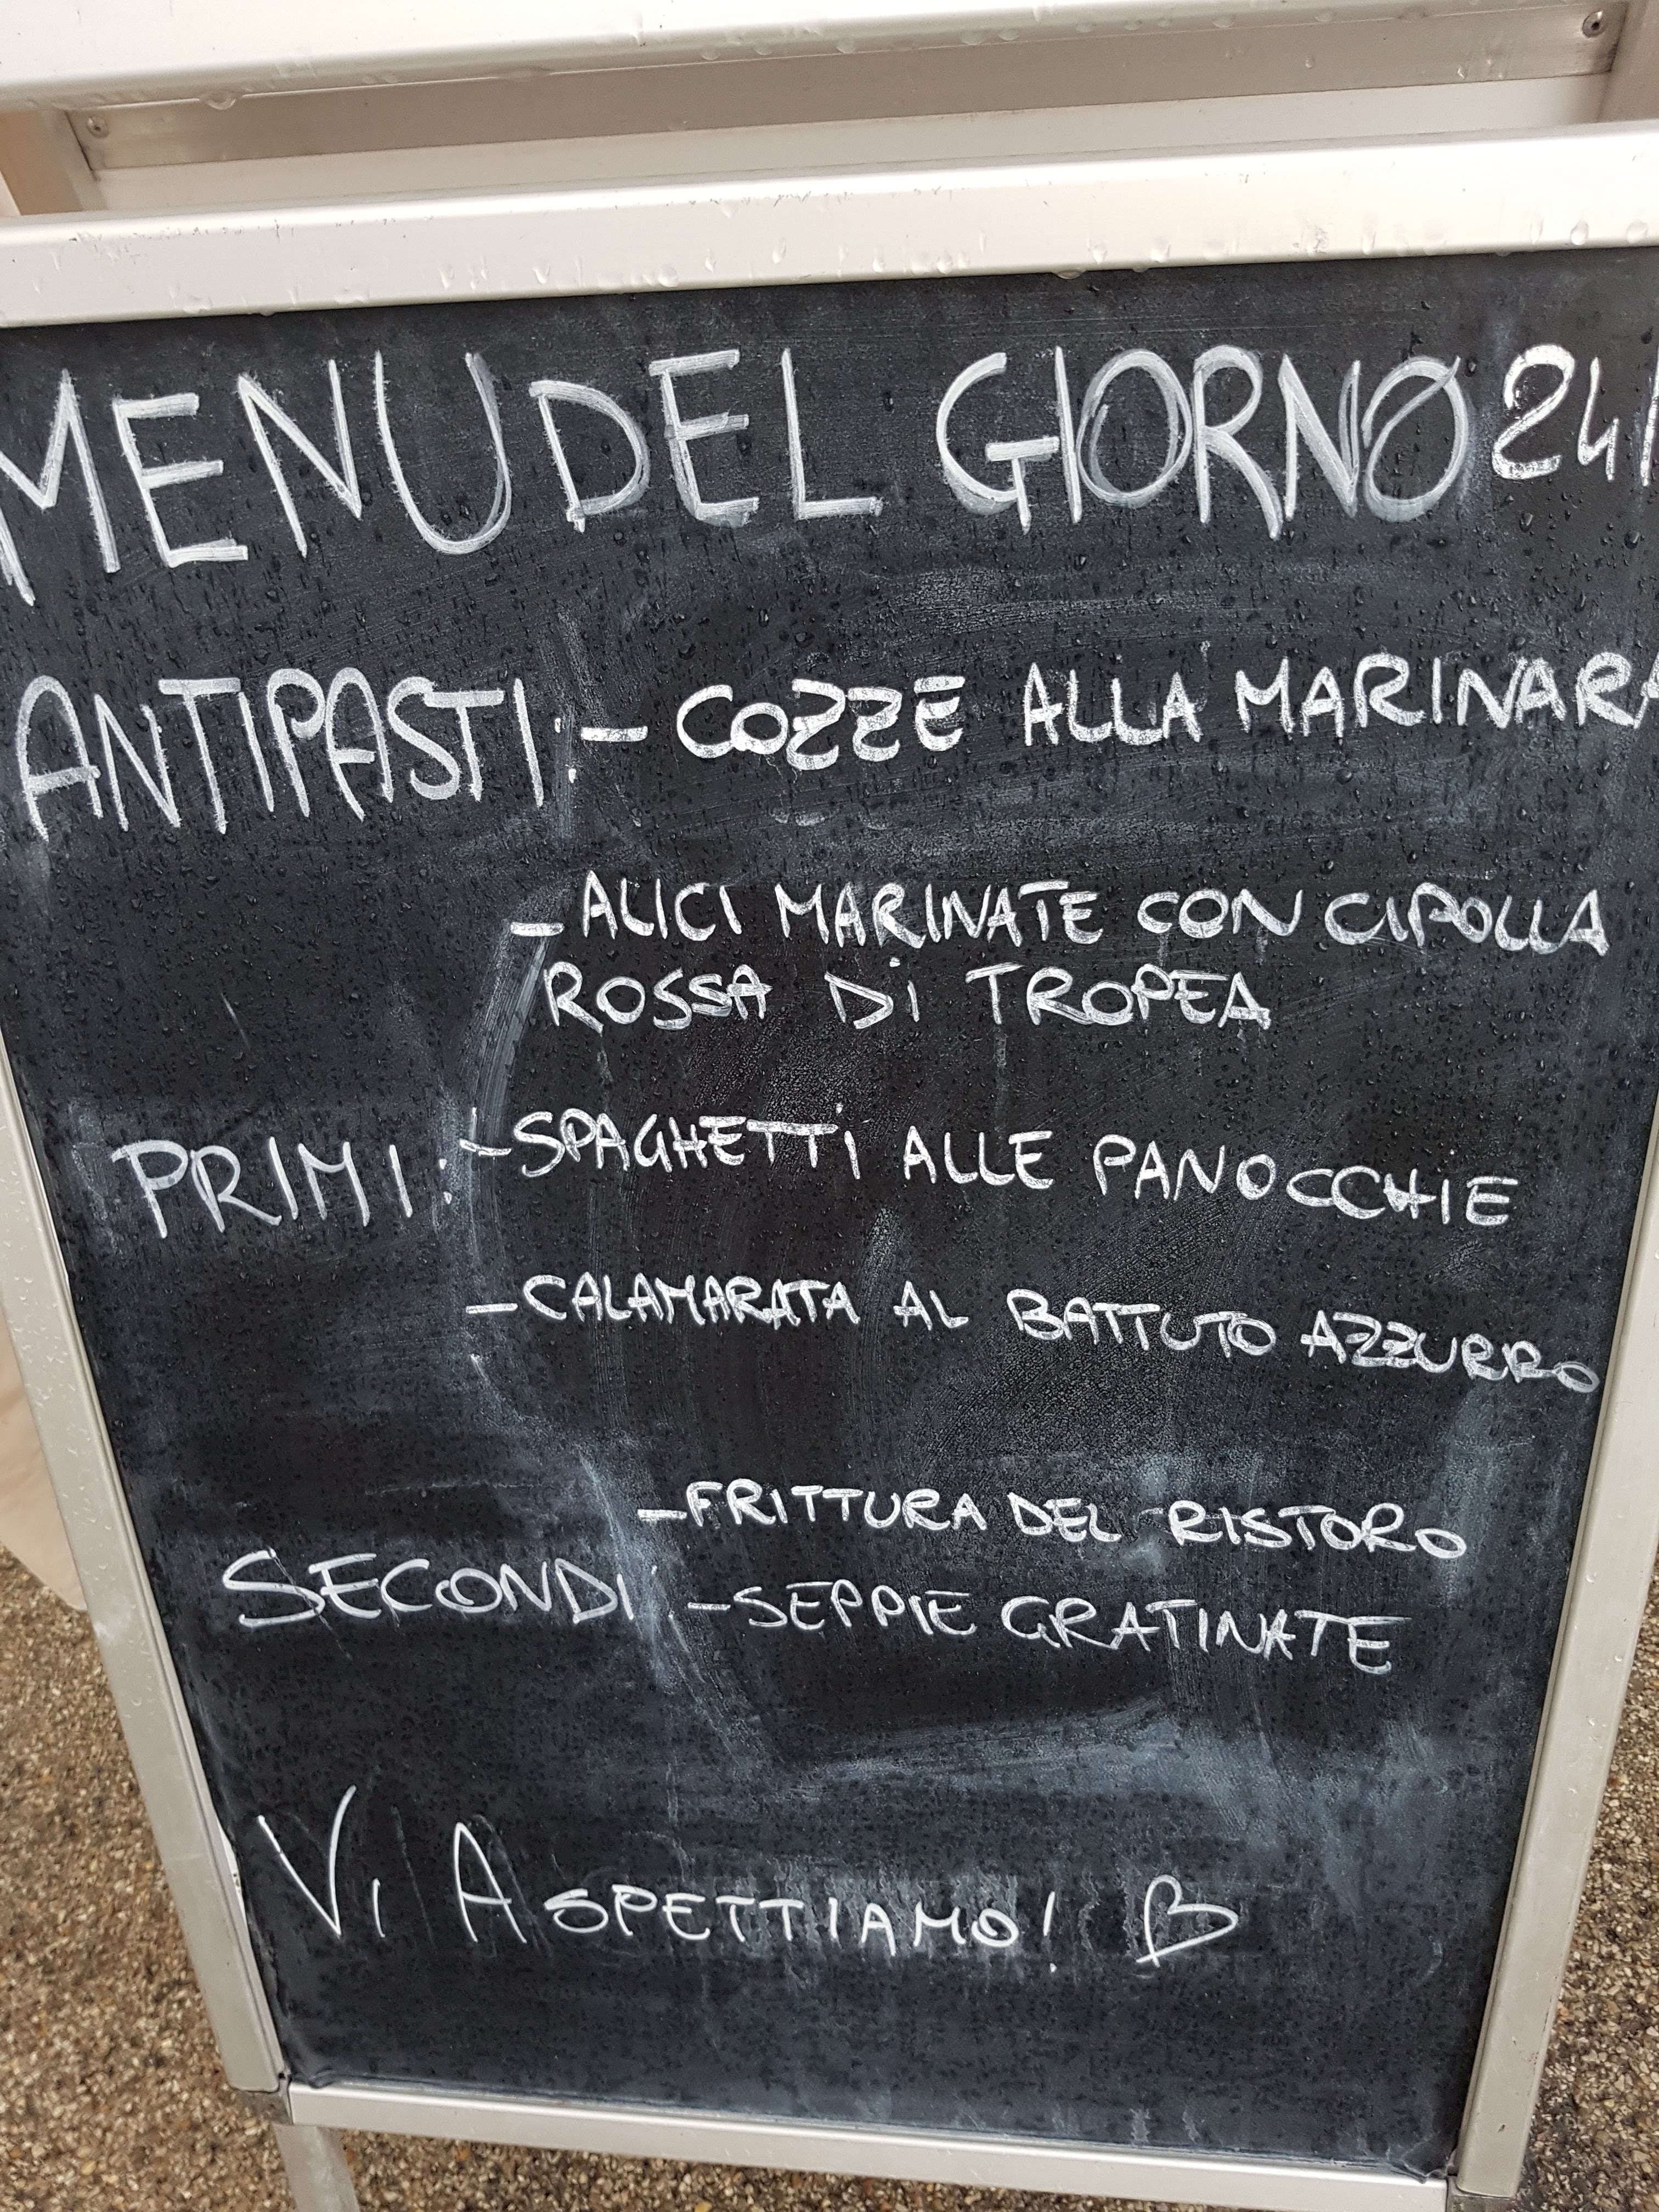 MENU DEL GIORNO 24/
ANTIPASTI: - COZZE ALLA MARINARA
- ALICI MARINATE CON CIPOLLA
ROSSA Di TROPEA
PRIMI: - SPAGHETTi ALLE PANOCCHIE
- CALAMARATA AL BATTUTO AZZURRO
- FRITTURA DEL RISTORO
SECONDI: - SEPPIE GRATINATE
Vi ASPETTIAMO!